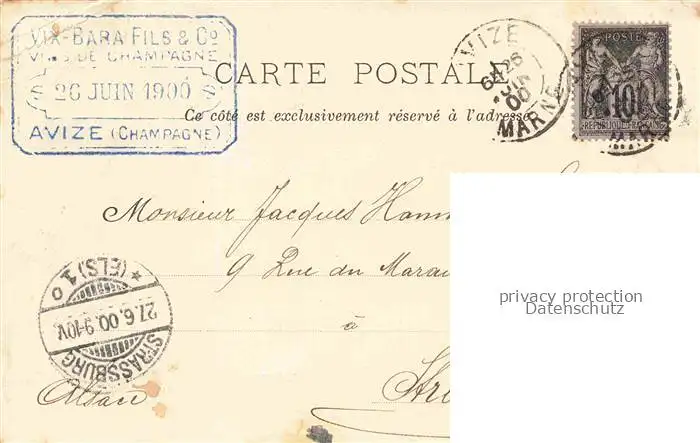 VIX-BARA FILS & Cº
VINS DE CHAMPAGNE
26 JUIN 1900
AVIZE (CHAMPAGNE)
CARTE POSTALE
Ce côté est exclusivement réservé à l'adresse
AVIZE
26
JUIN
00
MARNE
POSTE
10
REPUBLIQUE FRANÇAISE
Monsieur Jacques
9 Rue du
à
Alsace
STRASSBURG
* (ELS) 1 o
27.6.00.9-10V.
privacy protection
Datenschutz